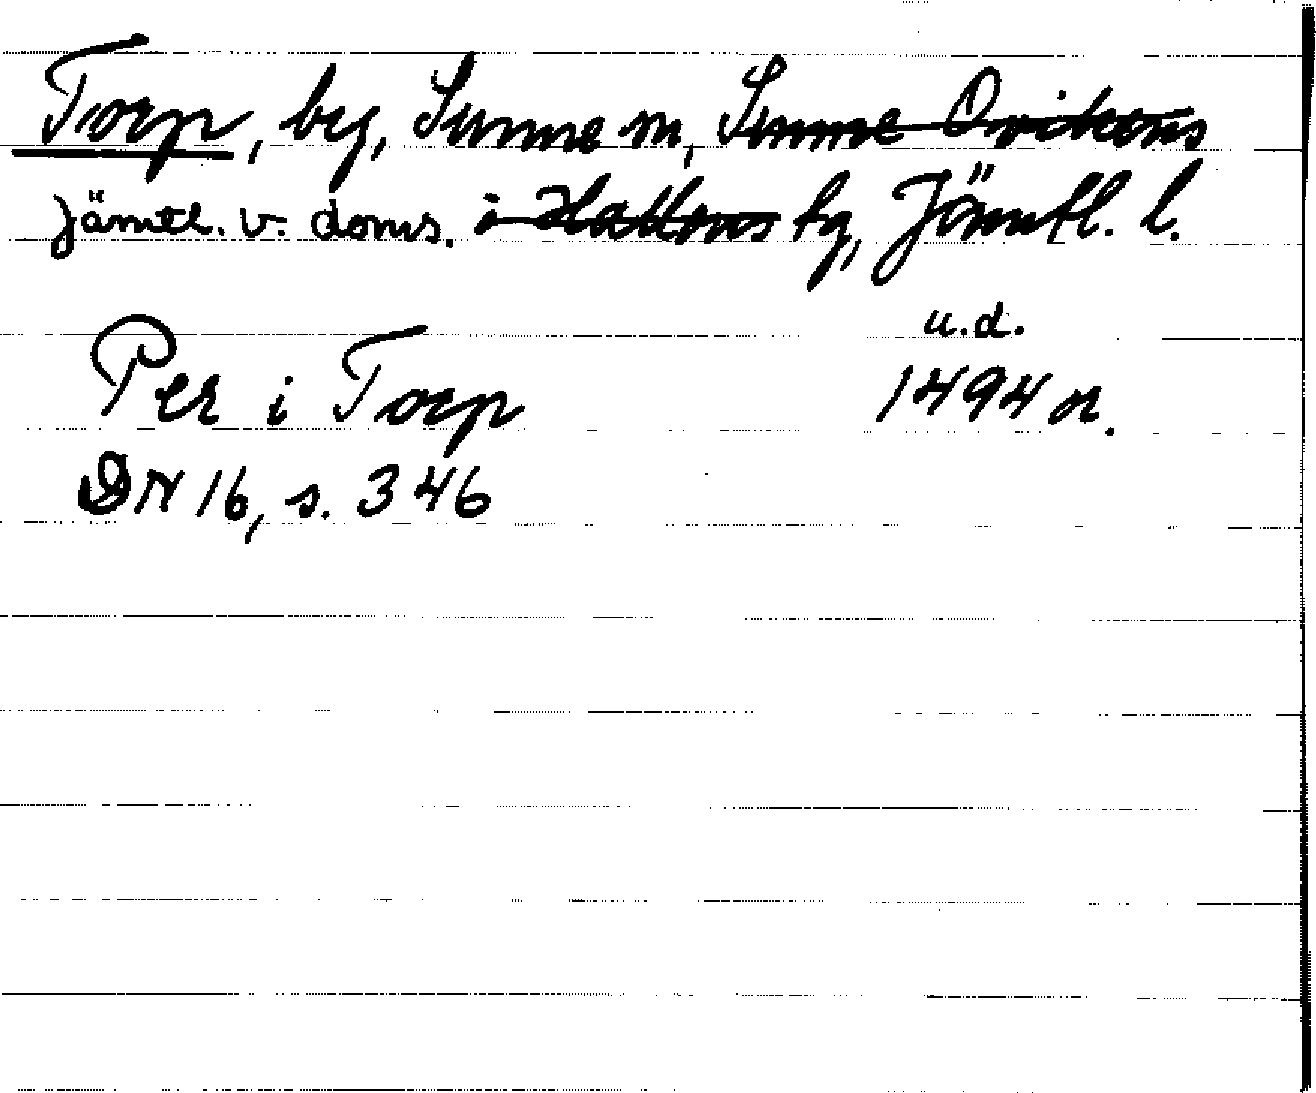 Torp, by, Sunne sn, Sunne Ovikens
Jämtl. v. doms. o Hallens tg, Jämtl. l.
u.d.
Per i Torp 1494 or.
DN 16, s. 346